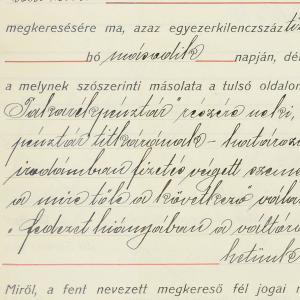 megkeresésére ma, azaz egyezerkilenczszáz
hó második napján, dél
a melynek szószerinti másolata a tulsó oldalon
Takarékpénztár" részére neki,
pénztár titkárának – határozo
irodámban fizetés végett szeme
a mire tőle a következő vála
„fedezet hiányjában a váltó
hetünk
Miről, a fent nevezett megkereső fél jogai